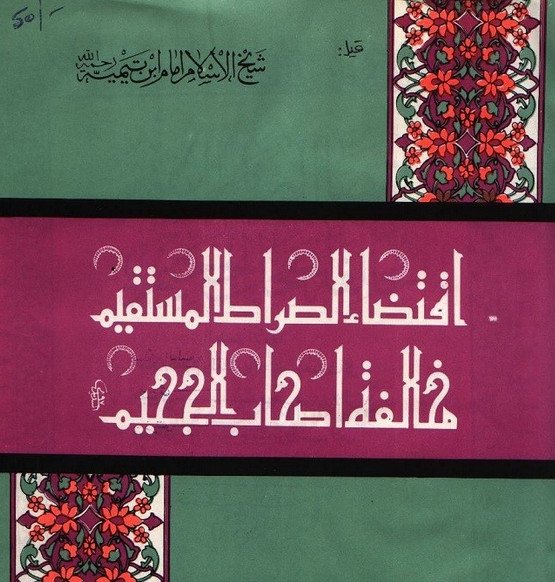 50/-
شیخ الاسلام امام ابن تیمیہ رحمہ اللہ
اقتضاء الصراط المستقيم
مخالفة اصحاب الجحيم